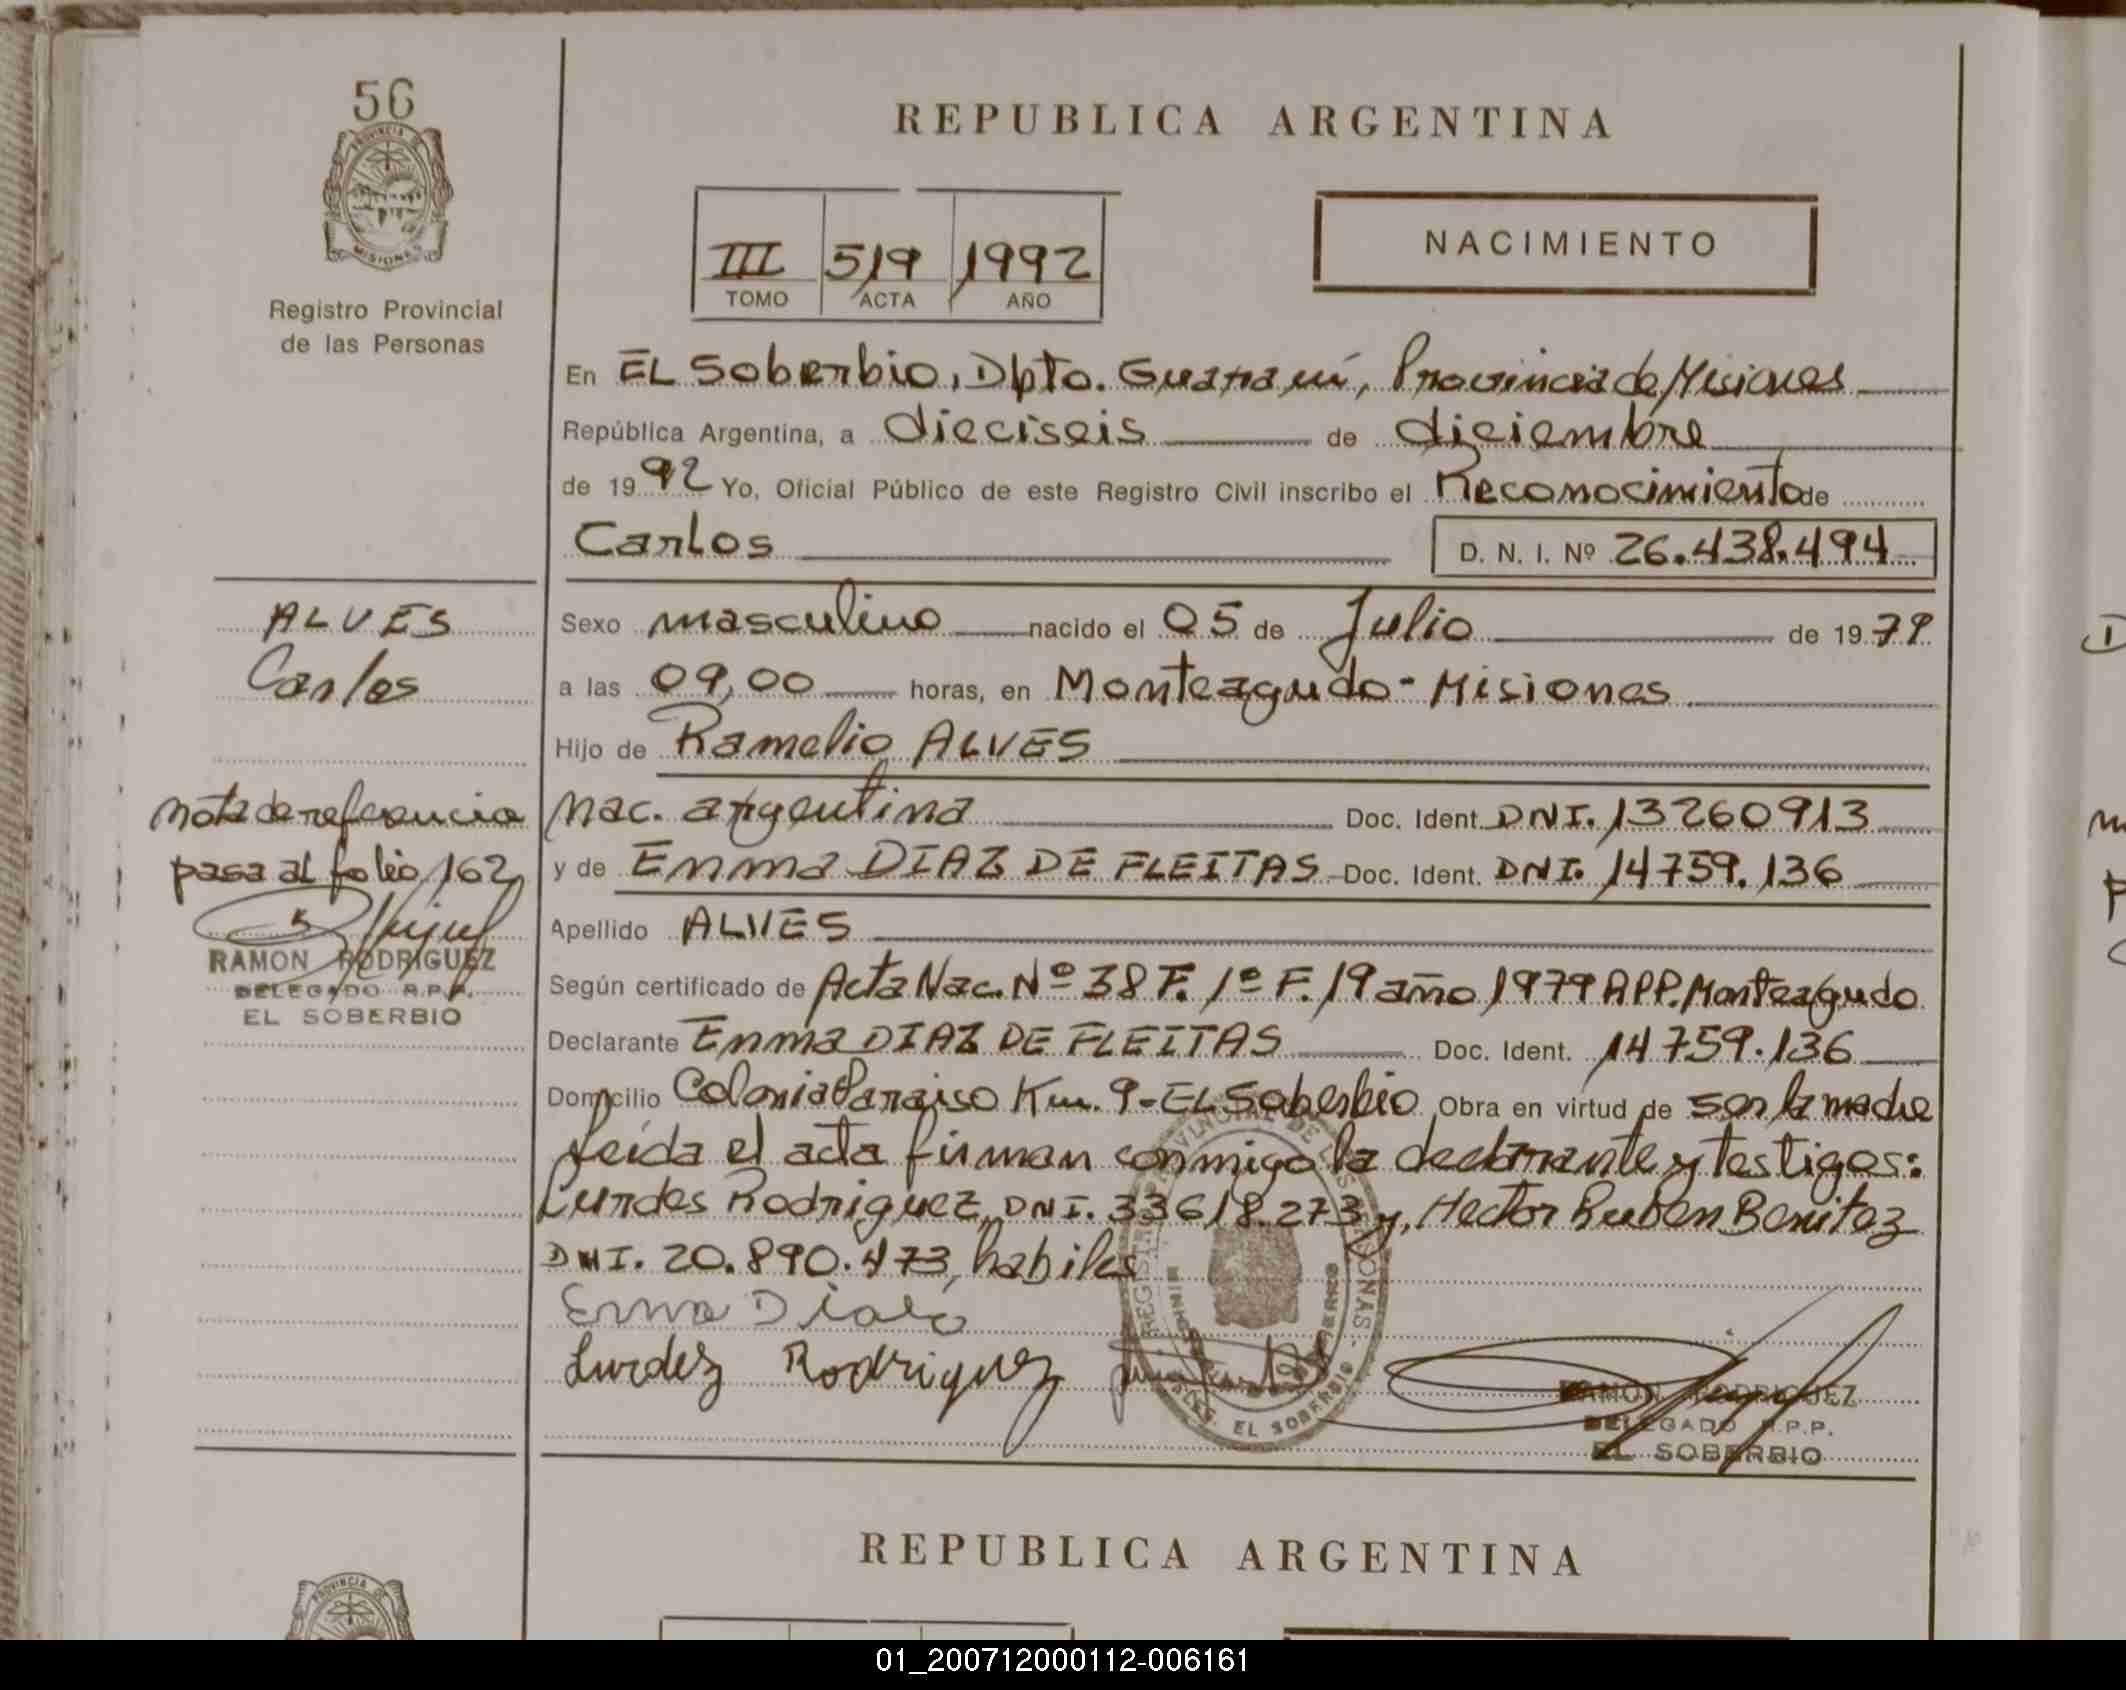 56
PROVINCIA DE
MISIONES
Registro Provincial
de las Personas
REPUBLICA ARGENTINA
III 519 1992
TOMO ACTA AÑO
NACIMIENTO
En EL Soberbio, Dpto. Guaraní, Provincia de Misiones
República Argentina, a dieciseis de diciembre
de 1992 Yo, Oficial Público de este Registro Civil inscribo el Reconocimiento de
Carlos D. N. I. Nº 26.438.494
ALVES
Carlos
Sexo masculino nacido el 05 de Julio de 1979
a las 09,00 horas, en Monteagudo - Misiones
Hijo de Ramelio ALVES
nac. argentina Doc. Ident. DNI. 13260913
y de Emma DIAZ DE FLEITAS Doc. Ident. DNI. 14759.136
nota de referencia
pasa al folio 162
RAMON RODRIGUEZ
DELEGADO R.P.P.
EL SOBERBIO
Apellido ALVES
Según certificado de Acta Nac. Nº 38 T. 1º F. 19 año 1979 RPP. Monteagudo
Declarante Emma DIAZ DE FLEITAS Doc. Ident. 14759.136
Domicilio Colonia Paraiso Km. 9 - EL Soberbio Obra en virtud de ser la madre
leída el acta firman conmigo la declarante y testigos:
Lurdes Rodriguez, DNI. 33618.273 y, Hector Ruben Benitez
DNI. 20.890.473, habiles
Lurdez Rodriguez
EL SOBERBIO
RAMON RODRIGUEZ
DELEGADO R.P.P.
EL SOBERBIO
REPUBLICA ARGENTINA
PROVINCIA DE
01_200712000112-006161